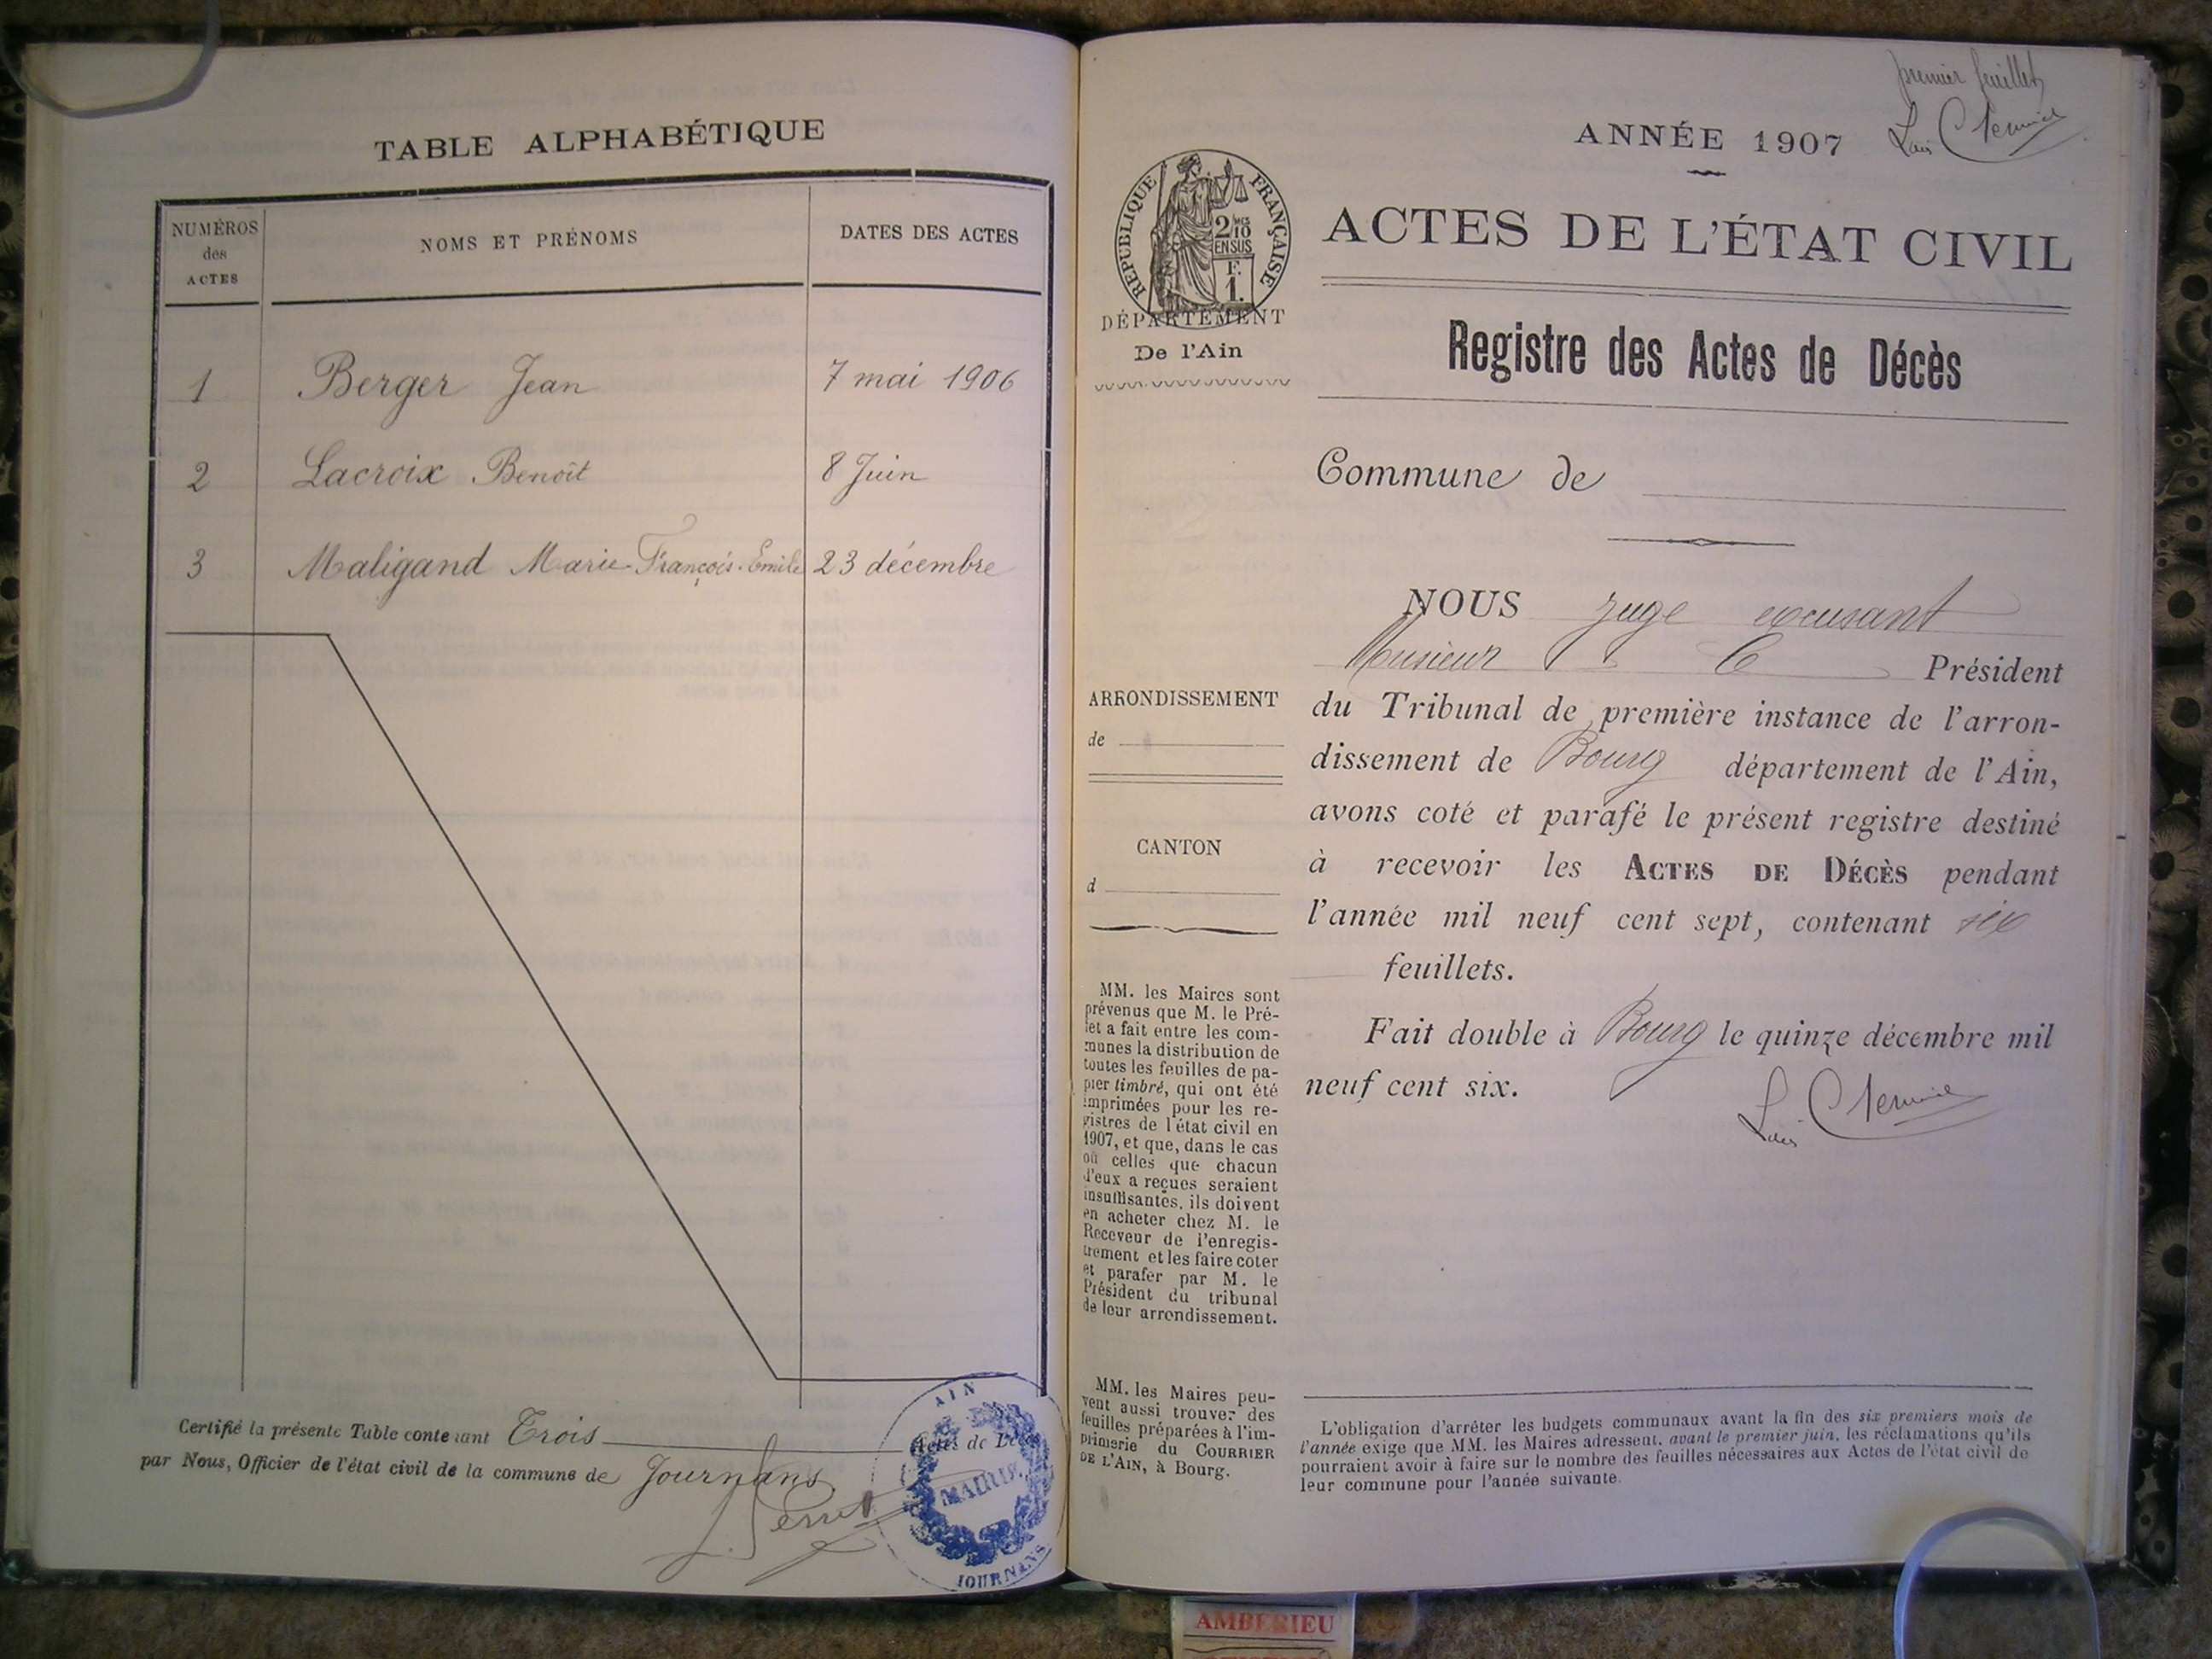 TABLE ALPHABÉTIQUE
NUMÉROS
des
ACTES
NOMS ET PRÉNOMS
DATES DES ACTES
1 Berger Jean 7 mai 1906
2 Lacroix Benoît 8 Juin
3 Maligand Marie-François-Emile 23 décembre
Certifié la présente Table contenant Trois Actes de Décès
par Nous, Officier de l'état civil de la commune de Journans
J. Perret
AIN
MAIRIE
JOURNANS
premier feuillet
ANNÉE 1907
RÉPUBLIQUE FRANÇAISE
2/10
EN SUS
F.
1.
DÉPARTEMENT
De l'Ain
ACTES DE L'ÉTAT CIVIL
Registre des Actes de Décès
Commune de
NOUS juge excusant
Monsieur Président
du Tribunal de première instance de l'arron-
dissement de Bourg département de l'Ain,
avons coté et parafé le présent registre destiné
à recevoir les ACTES DE DÉCÈS pendant
l'année mil neuf cent sept, contenant six
feuillets.
Fait double à Bourg le quinze décembre mil
neuf cent six.
ARRONDISSEMENT
de
CANTON
d
MM. les Maires sont
prévenus que M. le Pré-
fet a fait entre les com-
munes la distribution de
toutes les feuilles de pa-
pier timbré, qui ont été
imprimées pour les re-
gistres de l'état civil en
1907, et que, dans le cas
où celles que chacun
d'eux a reçues seraient
insuffisantes, ils doivent
en acheter chez M. le
Receveur de l'enregis-
trement et les faire coter
et parafer par M. le
Président du tribunal
de leur arrondissement.
MM. les Maires peu-
vent aussi trouver des
feuilles préparées à l'im-
primerie du COURRIER
DE L'AIN, à Bourg.
L'obligation d'arrêter les budgets communaux avant la fin des six premiers mois de
l'année exige que MM. les Maires adressent, avant le premier juin, les réclamations qu'ils
pourraient avoir à faire sur le nombre des feuilles nécessaires aux Actes de l'état civil de
leur commune pour l'année suivante.
AMBERIEU